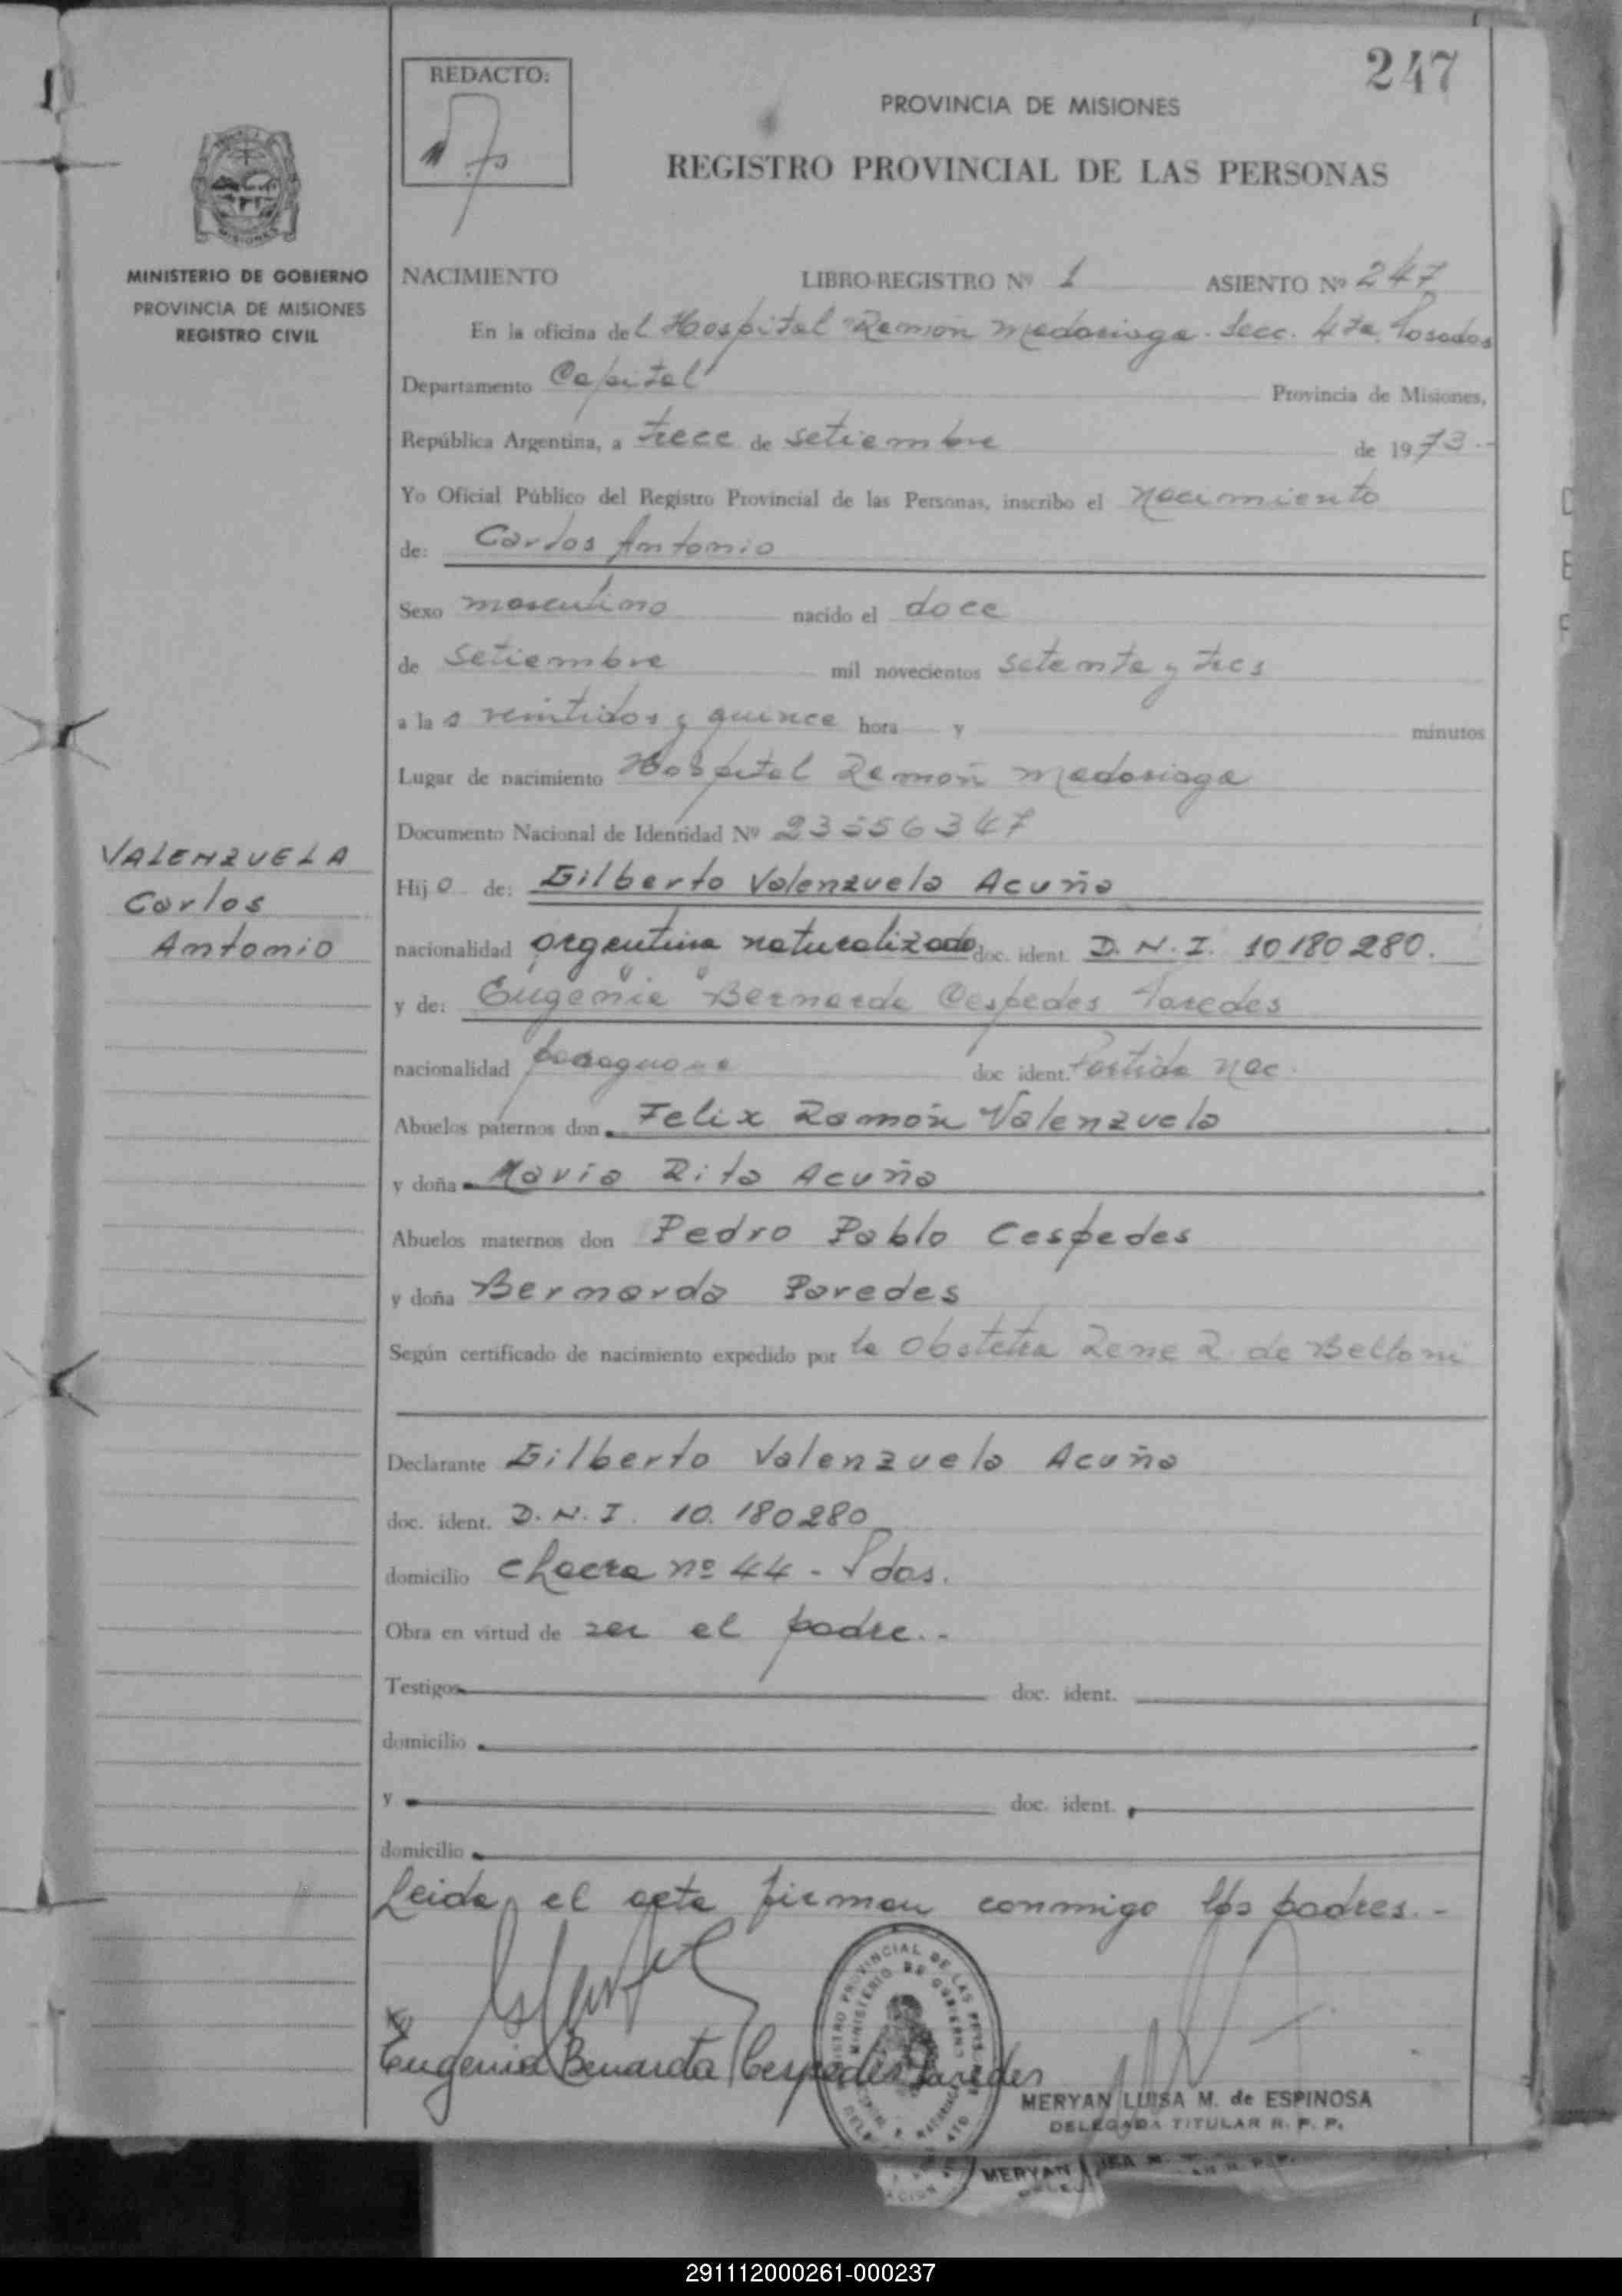 247
REDACTO:
PROVINCIA DE MISIONES
REGISTRO PROVINCIAL DE LAS PERSONAS
MISIONES
MINISTERIO DE GOBIERNO
PROVINCIA DE MISIONES
REGISTRO CIVIL
NACIMIENTO LIBRO-REGISTRO Nº 1 ASIENTO Nº 247
En la oficina del Hospital Ramón Madariaga. Secc. 4ta. Posadas
Departamento Capital Provincia de Misiones,
República Argentina, a trece de setiembre de 1973.-
Yo Oficial Público del Registro Provincial de las Personas, inscribo el nacimiento
de: Carlos Antonio
Sexo masculino nacido el doce
de setiembre mil novecientos setenta y tres
a las veintidos y quince hora y minutos
Lugar de nacimiento Hospital Ramón Madariaga
Documento Nacional de Identidad Nº 23556347
VALENZUELA
Carlos
Antonio
Hijo de: Gilberto Valenzuela Acuña
nacionalidad argentina naturalizado doc. ident. D.N.I. 10180280.
y de: Eugenia Bernarda Cespedes Paredes
nacionalidad paraguaya doc ident. Partida nac.
Abuelos paternos don Felix Ramón Valenzuela
y doña Maria Rita Acuña
Abuelos maternos don Pedro Pablo Cespedes
y doña Bernarda Paredes
Según certificado de nacimiento expedido por la Obstetra Rene R. de Belloni
Declarante Gilberto Valenzuela Acuña
doc. ident. D.N.I. 10.180280
domicilio Chacra nº 44 - Pdas.
Obra en virtud de ser el padre.-
Testigos doc. ident.
domicilio
y doc. ident.
domicilio
Leida el acta firman conmigo los padres.-
Eugenia Bernarda Cespedes Paredes
MERYAN LUISA M. de ESPINOSA
DELEGADA TITULAR R. P. P.
MERYAN
291112000261-000237